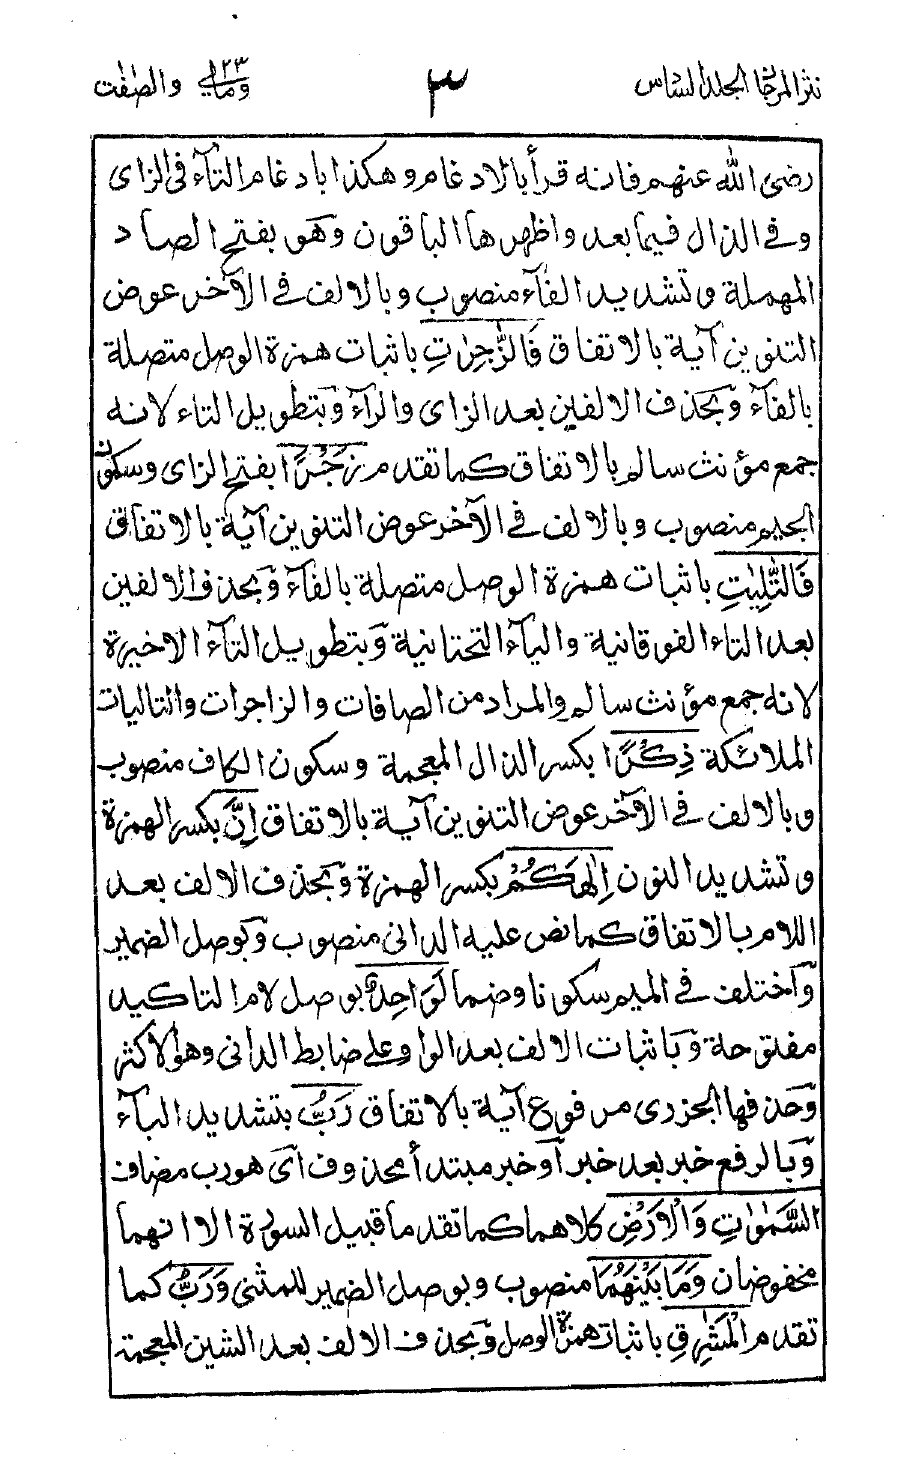 نثر المرجان الجلد السادس ٣ ومالي ٢٣ والصٰفٰت
رضى الله عنهم فانه قرأ بالادغام وهكذا بادغام التآء فى الزاى
وفى الذال فيما بعد واظهرها الباقون وهو بفتح الصاد
المهملة وتشديد الفآء منصوب وبالالف فى الآخر عوض
التنوين آية بالاتفاق فَالزّٰجِرٰتِ باثبات همزة الوصل متصلة
بالفآء وبحذف الالفين بعد الزاى والرآء وبتطويل التاء لانه
جمع مؤنث سالم بالاتفاق كما تقدم زَجْرًا بفتح الزاى وسكون
الجيم منصوب وبالالف فى الآخر عوض التنوين آية بالاتفاق
فَالتّٰلِيٰتِ باثبات همزة الوصل متصلة بالفآء وبحذف الالفين
بعد التاء الفوقانية والياء التحتانية وبتطويل التآء الاخيرة
لانه جمع مؤنث سالم والمراد من الصافات والزاجرات والتاليات
الملائكة ذِكْرًا بكسر الذال المعجمة وسكون الكاف منصوب
وبالالف فى الآخر عوض التنوين آية بالاتفاق اِنَّ بكسر الهمزة
وتشديد النون اِلٰهَكُمْ بكسر الهمزة وبحذف الالف بعد
اللام بالاتفاق كما نص عليه الدانى منصوب وبوصل الضمير
واختلف فى الميم سكونا وضما لَوَاحِدٌ بوصل لام التاكيد
مفتوحة وباثبات الالف بعد الواو على ضابط الدانى وهو الاكثر
وحذفها الجزرى مرفوع آية بالاتفاق رَبُّ بتشديد البآء
وبالرفع خبر بعد خبر أو خبر مبتدأ محذوف اى هو رب مضاف
السَّمٰوٰتِ وَالْاَرْضِ كلاهما كما تقدم ما قبيل السورة الا انهما
مخفوضان وَمَا بَيْنَهُمَا منصوب وبوصل الضمير للمثنى وَرَبُّ كما
تقدم الْمَشٰرِقِ باثبات همزة الوصل وبحذف الالف بعد الشين المعجمة